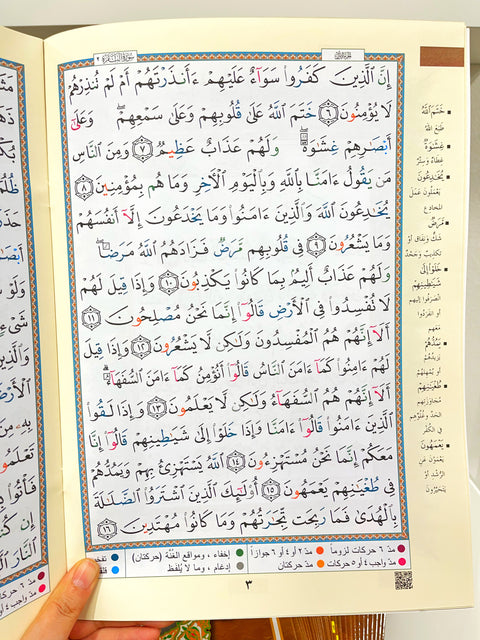 سورة البقرة ٢
إِنَّ ٱلَّذِينَ كَفَرُوا۟ سَوَآءٌ عَلَيْهِمْ ءَأَنذَرْتَهُمْ أَمْ لَمْ تُنذِرْهُمْ
لَا يُؤْمِنُونَ ٦ خَتَمَ ٱللَّهُ عَلَىٰ قُلُوبِهِمْ وَعَلَىٰ سَمْعِهِمْ ۖ وَعَلَىٰٓ
أَبْصَٰرِهِمْ غِشَٰوَةٌ ۖ وَلَهُمْ عَذَابٌ عَظِيمٌ ٧ وَمِنَ ٱلنَّاسِ
مَن يَقُولُ ءَامَنَّا بِٱللَّهِ وَبِٱلْيَوْمِ ٱلْءَاخِرِ وَمَا هُم بِمُؤْمِنِينَ ٨
يُخَٰدِعُونَ ٱللَّهَ وَٱلَّذِينَ ءَامَنُوا۟ وَمَا يَخْدَعُونَ إِلَّآ أَنفُسَهُمْ
وَمَا يَشْعُرُونَ ٩ فِى قُلُوبِهِم مَّرَضٌ فَزَادَهُمُ ٱللَّهُ مَرَضًا ۖ
وَلَهُمْ عَذَابٌ أَلِيمٌۢ بِمَا كَانُوا۟ يَكْذِبُونَ ١٠ وَإِذَا قِيلَ لَهُمْ
لَا تُفْسِدُوا۟ فِى ٱلْأَرْضِ قَالُوٓا۟ إِنَّمَا نَحْنُ مُصْلِحُونَ ١١
أَلَآ إِنَّهُمْ هُمُ ٱلْمُفْسِدُونَ وَلَٰكِن لَّا يَشْعُرُونَ ١٢ وَإِذَا قِيلَ
لَهُمْ ءَامِنُوا۟ كَمَآ ءَامَنَ ٱلنَّاسُ قَالُوٓا۟ أَنُؤْمِنُ كَمَآ ءَامَنَ ٱلسُّفَهَآءُ ۗ
أَلَآ إِنَّهُمْ هُمُ ٱلسُّفَهَآءُ وَلَٰكِن لَّا يَعْلَمُونَ ١٣ وَإِذَا لَقُوا۟
ٱلَّذِينَ ءَامَنُوا۟ قَالُوٓا۟ ءَامَنَّا وَإِذَا خَلَوْا۟ إِلَىٰ شَيَٰطِينِهِمْ قَالُوٓا۟ إِنَّا
مَعَكُمْ إِنَّمَا نَحْنُ مُسْتَهْزِءُونَ ١٤ ٱللَّهُ يَسْتَهْزِئُ بِهِمْ وَيَمُدُّهُمْ
فِى طُغْيَٰنِهِمْ يَعْمَهُونَ ١٥ أُو۟لَٰٓئِكَ ٱلَّذِينَ ٱشْتَرَوُا۟ ٱلضَّلَٰلَةَ
بِٱلْهُدَىٰ فَمَا رَبِحَت تِّجَٰرَتُهُمْ وَمَا كَانُوا۟ مُهْتَدِينَ ١٦
خَتَمَ اللَّهُ
طَبَعَ اللَّهُ
غِشَاوَةٌ
غِطَاءٌ وَسِتْرٌ
يُخَادِعُونَ
يَعْمَلُونَ عَمَلَ
المُخَادِعِ
مَرَضٌ
شَكٌّ وَنِفَاقٌ أَوْ
تَكْذِيبٌ وَجَحْدٌ
خَلَوْا إِلَى
شَيَاطِينِهِمْ
انْصَرَفُوا إِلَيْهِم
أَوِ انْفَرَدُوا
مَعَهُم
يَمُدُّهُمْ
يَزِيدُهُمْ
أَوْ يُمْهِلُهُمْ
طُغْيَانِهِمْ
مُجَاوَزَتِهِم
الحَدَّ وَغُلُوِّهِم
فِي الكُفْرِ
يَعْمَهُونَ
يَعْمَوْنَ عَنِ
الرُّشْدِ أَوْ
يَتَحَيَّرُونَ
مدّ ٦ حركات لزوماً مدّ ٢ أو ٤ أو ٦ جوازاً إخفاء ، ومواقع الغُنَّة (حركتان)
مدّ واجب ٤ أو ٥ حركات مدّ حركتان إدغام ، وما لا يُلفظ
٣